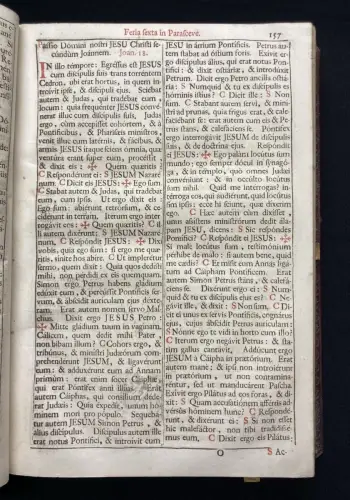 Feria sexta in Parasceve. 157
Passio Domini nostri JESU Christi secundùm Joannem. Joan. 18.
IN illo tempore: Egressus est JESUS
cum discipulis suis trans torrentem
Cedron, ubi erat hortus, in quem introivit
ipse, & discipuli ejus. Sciebat
autem & Judas, qui tradebat eum,
locum: quia frequenter JESUS convenerat
illuc cum discipulis suis. Judas
ergo, cùm accepisset cohortem, & à
Pontificibus, & Phariseis ministros,
venit illuc cum laternis, & facibus, &
armis. JESUS itaque sciens omnia, quæ
ventura erant super eum, processit,
& dixit eis: ✠ Quem quæritis?
C Responderunt ei: S JESUM Nazarenum.
C Dicit eis JESUS: ✠ Ego sum.
C Stabat autem & Judas, qui tradebat
eum, cum ipsis. Ut ergo dixit eis
Ego sum: abierunt retrorsum, & ceciderunt
in terram. Iterum ergo interrogavit
eos: ✠ Quem quæritis? C Illi
autem dixerunt: S JESUM Nazarenum.
C Respondit JESUS: ✠ Dixi
vobis, quia ego sum: si ergo me quæritis,
sinite hos abire. C Ut impleretur
sermo, quem dixit: Quia quos dedisti
mihi, non perdidi ex eis quemquam.
Simon ergo Petrus habens gladium
eduxit eum, & percussit Pontificis servum,
& abscidit auriculam ejus dexteram.
Erat autem nomen servo Malchus.
Dixit ergo JESUS Petro:
✠ Mitte gladium tuum in vaginam.
Calicem, quem dedit mihi Pater,
non bibam illum? C Cohors ergo, &
tribunus, & ministri Judæorum comprehenderunt
JESUM, & ligaverunt
eum: & adduxerunt eum ad Annam
primùm: erat enim socer Caiphæ,
qui erat Pontifex anni illius. Erat
autem Caiphas, qui consilium dederat
Judæis: Quia expedit, unum hominem
mori pro populo. Sequebatur
autem JESUM Simon Petrus, &
alius discipulus. Discipulus autem ille
erat notus Pontifici, & introivit cum
JESU in atrium Pontificis. Petrus autem
stabat ad ostium foris. Exivit ergo
discipulus alius, qui erat notus Pontifici:
& dixit ostiariæ, & introduxit
Petrum. Dicit ergo Petro ancilla ostiaria:
S Numquid & tu ex discipulis es
hominis istius? C Dicit ille: S Non
sum. C Stabant autem servi, & ministri
ad prunas, quia frigus erat, & calefaciebant
se: erat autem cum eis & Petrus
stans, & calefaciens se. Pontifex
ergo interrogavit JESUM de discipulis
suis, & de doctrina ejus. Respondit
ei JESUS: ✠ Ego palàm locutus sum
mundo: ego semper docui in synagoga,
& in templo, quò omnes Judæi
conveniunt: & in occulto locutus
sum nihil. Quid me interrogas? interroga
eos, qui audierunt, quid locutus
sim ipsis: ecce hi sciunt, quæ dixerim
ego. C Hæc autem cùm dixisset,
unus assistens ministrorum dedit alapam
JESU, dicens: S Sic respondes
Pontifici? C Respondit ei JESUS: ✠
Si malè locutus sum, testimonium
perhibe de malo: si autem bene, quid
me cædis? C Et misit eum Annas ligatum
ad Caipham Pontificem. Erat
autem Simon Petrus stans, & calefaciens
se. Dixerunt ergo ei: S Numquid
& tu ex discipulis ejus es? C Negavit
ille, & dixit: S Non sum. C Dicit
ei unus ex servis Pontificis, cognatus
ejus, cujus abscidit Petrus auriculam:
S Nonne ego te vidi in horto cum illo?
C Iterum ergo negavit Petrus: & statim
gallus cantavit. Adducunt ergo
JESUM à Caipha in prætorium. Erat
autem mane: & ipsi non introierunt
in prætorium, ut non contaminarentur,
sed ut manducarent Pascha.
Exivit ergo Pilatus ad eos foras, & dixit:
S Quam accusationem affertis adversùs
hominem hunc? C Responderunt,
& dixerunt ei: S Si non esset
hic malefactor, non tibi tradidissemus
eum. C Dixit ergo eis Pilatus:
O S Ac-